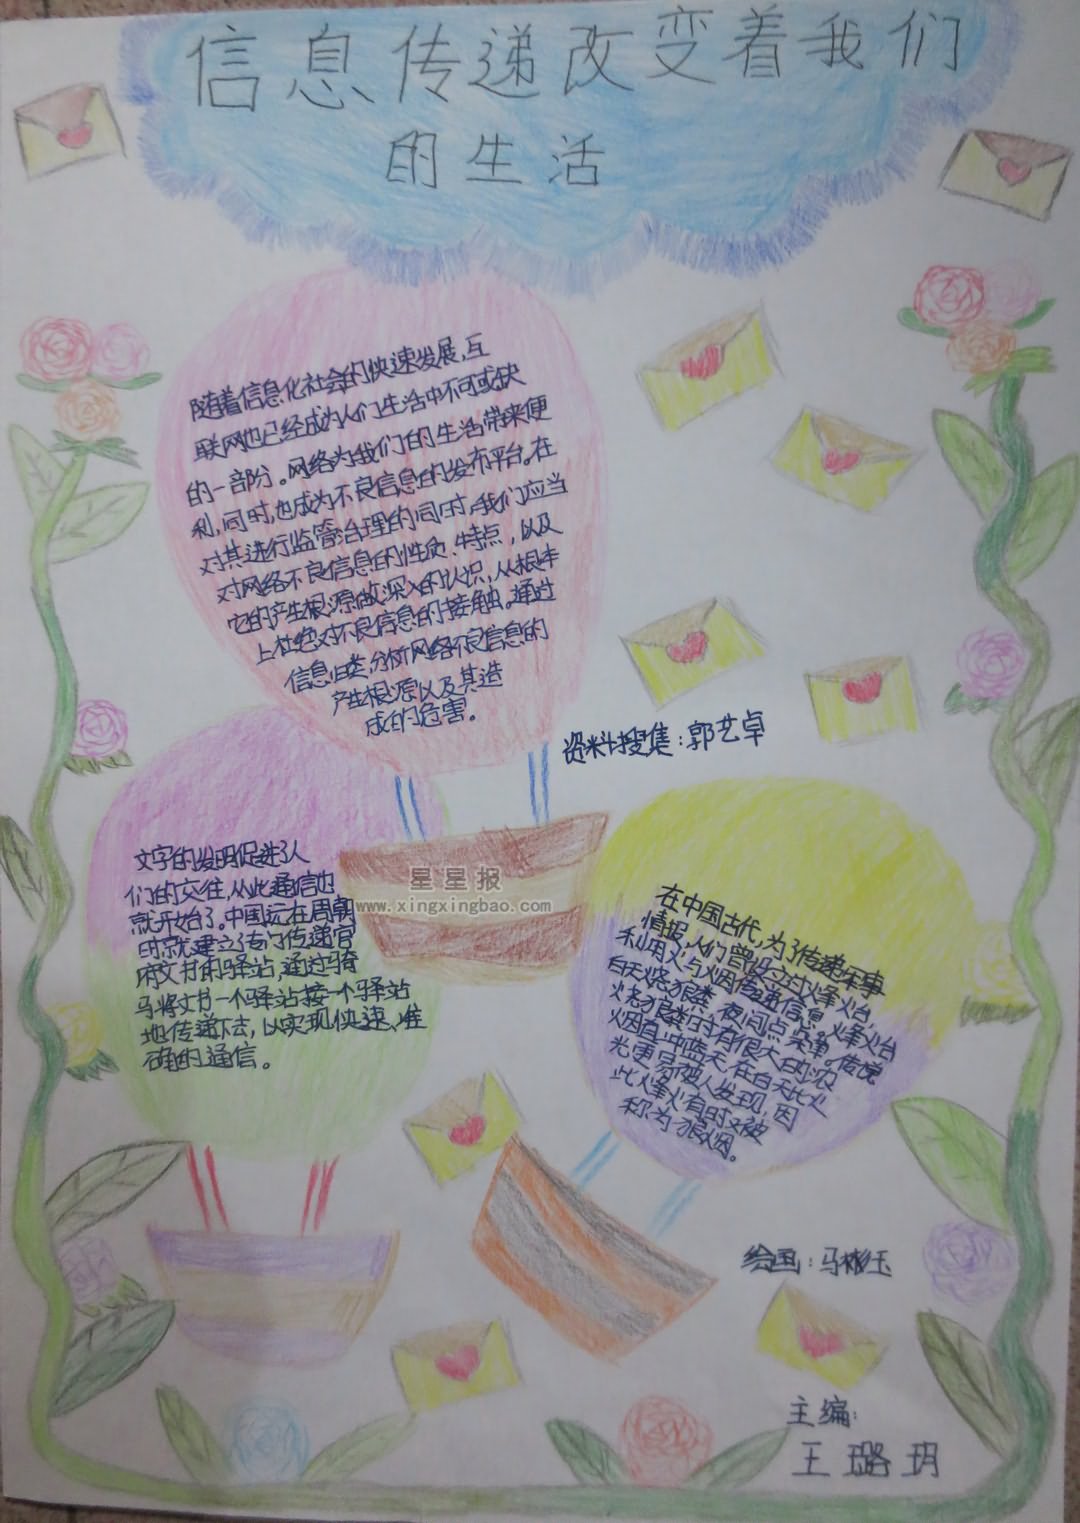 信息传递改变着我们
的生活
随着信息化社会的快速发展,互
联网也已经成为人们生活中不可或缺
的一部分。网络为我们的生活带来便
利,同时,也成为不良信息的发布平台。在
对其进行监管治理的同时,我们应当
对网络不良信息的性质、特点,以及
它的产生根源做深入的认识,从根本
上杜绝对不良信息的接触。通过
信息归类,分析网络不良信息的
产生根源以及其造
成的危害。
资料搜集:郭艺卓
文字的发明促进了人
们的交往,从此通信也
就开始了。中国远在周朝
时就建立了专门传递官
府文书的驿站,通过骑
马将文书一个驿站接一个驿站
地传递下去,以实现快速、准
确的通信。
星星报
www.xingxingbao.com
在中国古代,为了传递军事
情报,人们曾设立过烽火台,
利用火与烟传递信息。烽火台
白天烧狼粪,夜间点柴草。传说
烧狼粪时有很大的浓
烟直冲蓝天,在白天比火
光更易被人发现,因
此烽火有时又被
称为狼烟。
绘画:马彬玉
主编:
王璐玥